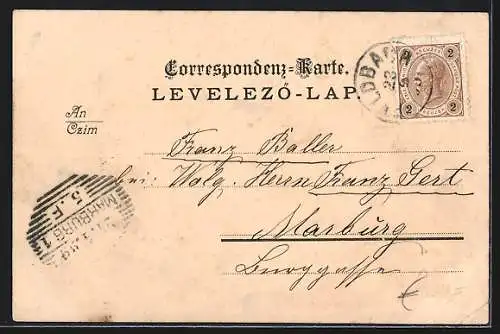 Correspondenz-Karte.
LEVELEZŐ-LAP.
An
Czim
2 2
2 2
FELDBACH
23
Franz Baller
bei Wolg. Herrn Franz Gert
Marburg
Burggasse
MARBURG 1
5.F